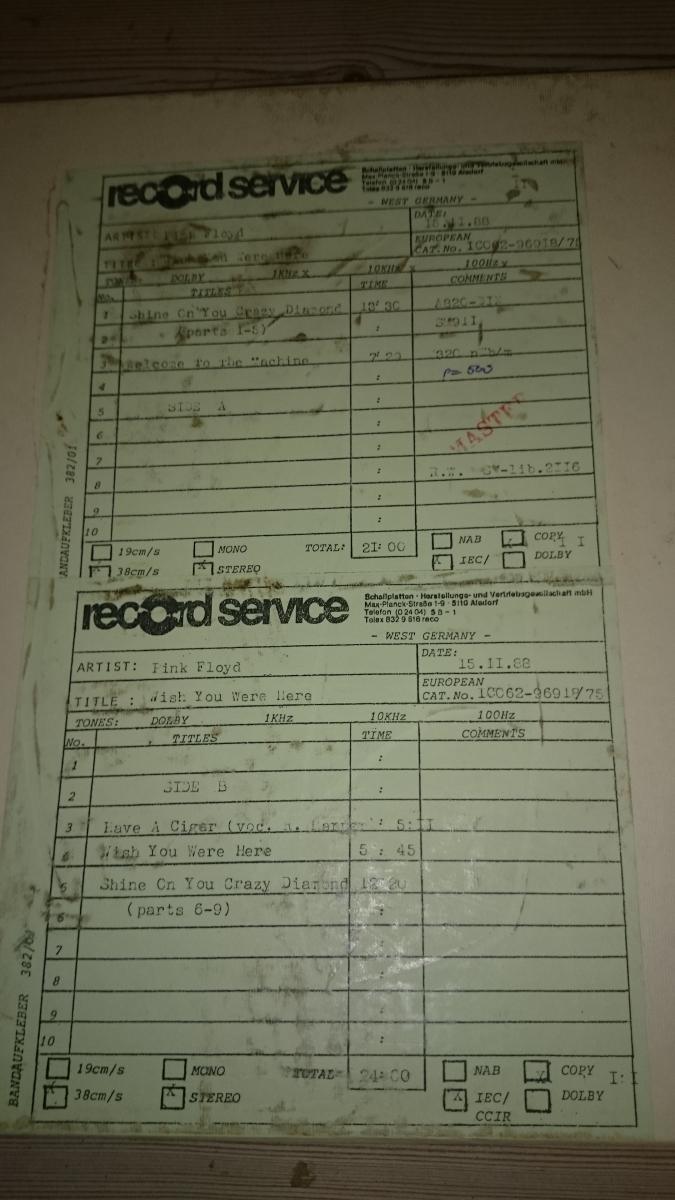 record service
Schallplatten - Herstellungs- und Vertriebsgesellschaft mbH
Max-Planck-Straße 1-9 · 5110 Alsdorf
Telefon (0 24 04) 5 8 - 1
Telex 832 9 616 reco
- WEST GERMANY -
ARTIST: Pink Floyd
DATE:
15.11.88
TITLE : Were Here
EUROPEAN
CAT.No. 1C062-96918/75
TONES: DOLBY 1KHz x 10KHz x 100Hz x
No. TITLES TIME COMMENTS
1 Shine On You Crazy Diamond 13' 30
2 (parts 1-5) :
3 Welcome To The Machine 7' 20 320
4 : P= 500
5 SIDE A :
6 : MASTER
7 :
8 : R.W.
9 :
10 :
19cm/s MONO TOTAL: 21: 00 NAB COPY I
x 38cm/s x STEREO x IEC/ DOLBY
BANDAUFKLEBER 382/01
record service
Schallplatten - Herstellungs- und Vertriebsgesellschaft mbH
Max-Planck-Straße 1-9 · 5110 Alsdorf
Telefon (0 24 04) 5 8 - 1
Telex 832 9 616 reco
- WEST GERMANY -
ARTIST: Pink Floyd
DATE:
15.II.88
TITLE : Wish You Were Here
EUROPEAN
CAT.No. 1C062-96918/75
TONES: DOLBY 1KHz 10KHz 100Hz
No. TITLES TIME COMMENTS
1 :
2 SIDE B :
3 Have A Cigar (voc. : 5:II
4 Wish You Were Here 5 : 45
5 Shine On You Crazy Diamond 12:20
6 (parts 6-9) :
7 :
8 :
9 :
10 :
19cm/s MONO TOTAL: 24: 00 NAB x COPY I:I
x 38cm/s x STEREO x IEC/ DOLBY
CCIR
BANDAUFKLEBER 382/01